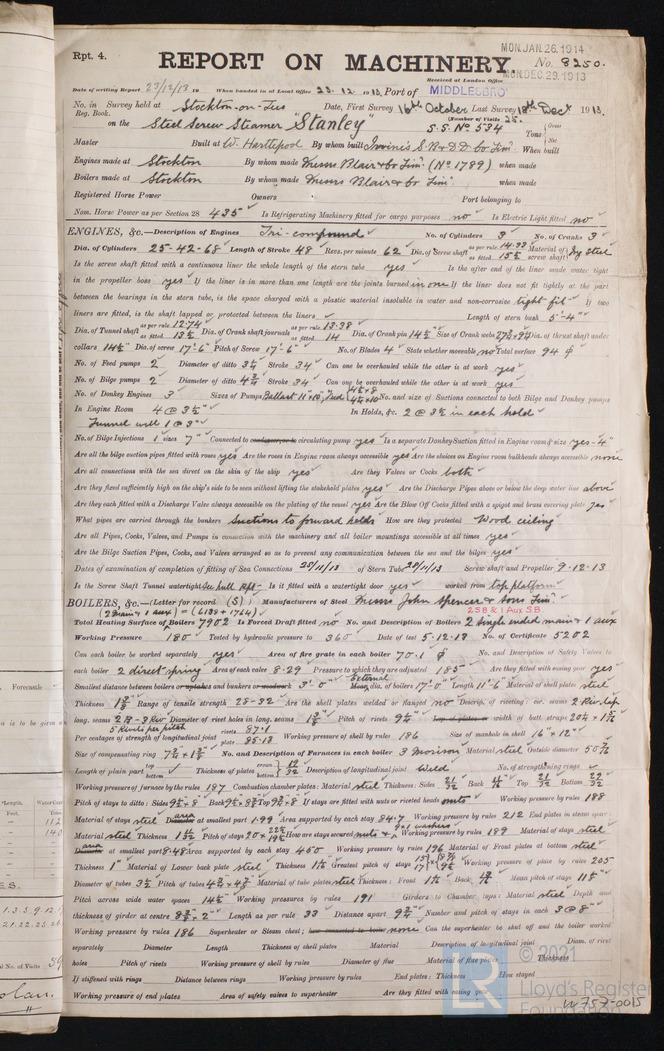 Rpt. 4.
REPORT ON MACHINERY.
MON. JAN. 26. 1914
No. 8250.
Received at London Office
MON. DEC. 29. 1913
Date of writing Report 23/12/13 19 When handed in at Local Office 23.12.1913. Port of MIDDLESBRO'
No. in Survey held at Stockton-on-Tees Date, First Survey 16th October Last Survey 18th Dec 1913.
Reg. Book. (Number of Visits 25.
on the Steel Screw Steamer "Stanley" S.S. No 534 Tons Gross Net
Master Built at W. Hartlepool By whom built Irvine's S.B. & D.D. Co Lim. When built
Engines made at Stockton By whom made Messrs Blair & Co Lim. (No 1789) when made
Boilers made at Stockton By whom made Messrs Blair & Co Lim. when made
Registered Horse Power Owners Port belonging to
Nom. Horse Power as per Section 28 435 Is Refrigerating Machinery fitted for cargo purposes no Is Electric Light fitted no
ENGINES, &c.—Description of Engines Tri-compound No. of Cylinders 3 No. of Cranks 3
Dia. of Cylinders 25-42-68 Length of Stroke 48 Revs. per minute 62 Dia. of Screw shaft as per rule 14.38 as fitted 15½ Material of screw shaft Ing steel
Is the screw shaft fitted with a continuous liner the whole length of the stern tube yes Is the after end of the liner made water tight
in the propeller boss yes If the liner is in more than one length are the joints burned in one If the liner does not fit tightly at the part
between the bearings in the stern tube, is the space charged with a plastic material insoluble in water and non-corrosive tight fit If two
liners are fitted, is the shaft lapped or protected between the liners Length of stern bush 5'-4"
Dia. of Tunnel shaft as per rule 12.74 as fitted 13½ Dia. of Crank shaft journals as per rule 13.38 as fitted 14 Dia. of Crank pin 14½ Size of Crank webs Dia. of thrust shaft under
collars 14½" Dia. of screw 17'-6" Pitch of Screw 17'-6" No. of Blades 4 State whether moveable no Total surface 94
No. of Feed pumps 2 Diameter of ditto 3½ Stroke 34 Can one be overhauled while the other is at work yes
No. of Bilge pumps 2 Diameter of ditto Stroke 34 Can one be overhauled while the other is at work yes
No. of Donkey Engines 3 Sizes of Pumps Ballast No. and size of Suctions connected to both Bilge and Donkey pumps
In Engine Room 4 @ 3½" In Holds, &c. 2 @ 3½ in each hold
Tunnel well 1 @ 3"
No. of Bilge Injections 1 sizes 7" Connected to circulating pump yes Is a separate Donkey Suction fitted in Engine room & size yes-4"
Are all the bilge suction pipes fitted with roses yes Are the roses in Engine room always accessible yes Are the sluices on Engine room bulkheads always accessible none
Are all connections with the sea direct on the skin of the ship yes Are they Valves or Cocks both
Are they fixed sufficiently high on the ship's side to be seen without lifting the stokehold plates yes Are the Discharge Pipes above or below the deep water line above
Are they each fitted with a Discharge Valve always accessible on the plating of the vessel yes Are the Blow Off Cocks fitted with a spigot and brass covering plate yes
What pipes are carried through the bunkers Suctions to forward holds How are they protected Wood ceiling
Are all Pipes, Cocks, Valves, and Pumps in connection with the machinery and all boiler mountings accessible at all times yes
Are the Bilge Suction Pipes, Cocks, and Valves arranged so as to prevent any communication between the sea and the bilges yes
Dates of examination of completion of fitting of Sea Connections 20/11/13 of Stern Tube 20/11/13 Screw shaft and Propeller 9-12-13
Is the Screw Shaft Tunnel watertight See hull Rpt- Is it fitted with a watertight door yes worked from top platform
BOILERS, &c.—(Letter for record (S)) Manufacturers of Steel Messrs John Spencer & Sons Lim.
(2 Main & 1 aux) = (6138 + 1764) 2SB & 1 Aux S.B.
Total Heating Surface of Boilers 7902 Is Forced Draft fitted no No. and Description of Boilers 2 single ended main & 1 aux
Working Pressure 180 Tested by hydraulic pressure to 360 Date of test 5-12-13 No. of Certificate 5202
Can each boiler be worked separately yes Area of fire grate in each boiler 70.1 No. and Description of Safety Valves to
each boiler 2 direct spring Area of each valve 8.29 Pressure to which they are adjusted 185 Are they fitted with easing gear yes
Smallest distance between boilers or uptakes and bunkers or woodwork 3'-0" External dia. of boilers 17'-0" Length 11'-6" Material of shell plates steel
Thickness Range of tensile strength 28-32 Are the shell plates welded or flanged no Descrip. of riveting: cir. seams 2 Riv. lap
long. seams Diameter of rivet holes in long. seams Pitch of rivets width of butt straps
Per centages of strength of longitudinal joint rivets 87.1 plate 85.18 Working pressure of shell by rules 186 Size of manhole in shell 16"×12"
Size of compensating ring No. and Description of Furnaces in each boiler 3 Morison Material steel Outside diameter
Length of plain part top bottom Thickness of plates crown bottom Description of longitudinal joint Weld No. of strengthening rings
Working pressure of furnace by the rules 187 Combustion chamber plates: Material steel Thickness: Sides Back Top Bottom
Pitch of stays to ditto: Sides Back Top If stays are fitted with nuts or riveted heads nuts Working pressure by rules 188
Material of stays steel area at smallest part 1.99 Area supported by each stay 84.7 Working pressure by rules 212 End plates in steam space:
Material steel Thickness Pitch of stays How are stays secured nuts & washers Working pressure by rules 189 Material of stays steel
area at smallest part 8.48 Area supported by each stay 460 Working pressure by rules 196 Material of Front plates at bottom steel
Thickness 1" Material of Lower back plate steel Thickness Greatest pitch of stays Working pressure of plate by rules 205
Diameter of tubes 3½ Pitch of tubes Material of tube plates steel Thickness: Front Back Mean pitch of stays
Pitch across wide water spaces 14½" Working pressures by rules 191 Girders to Chamber tops: Material steel Depth and
thickness of girder at centre Length as per rule 33 Distance apart Number and pitch of stays in each 3 @ 8"
Working pressure by rules 186 Superheater or Steam chest; how connected to boiler none Can the superheater be shut off and the boiler worked
separately Diameter Length Thickness of shell plates Material Description of longitudinal joint Diam. of rivet
holes Pitch of rivets Working pressure of shell by rules Diameter of flue Material of flue plates Thickness
If stiffened with rings Distance between rings Working pressure by rules End plates: Thickness How stayed
Working pressure of end plates Area of safety valves to superheater Are they fitted with easing gear
© 2021
Lloyd's Register
Foundation
W757-0015